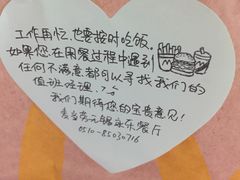 工作再忙，也要按时吃饭。
如果您在用餐过程中遇到
任何不满意都可以寻找我们的
值班经理，
我们期待您的宝贵意见！
麦当劳无锡 东餐厅
0510-85030716